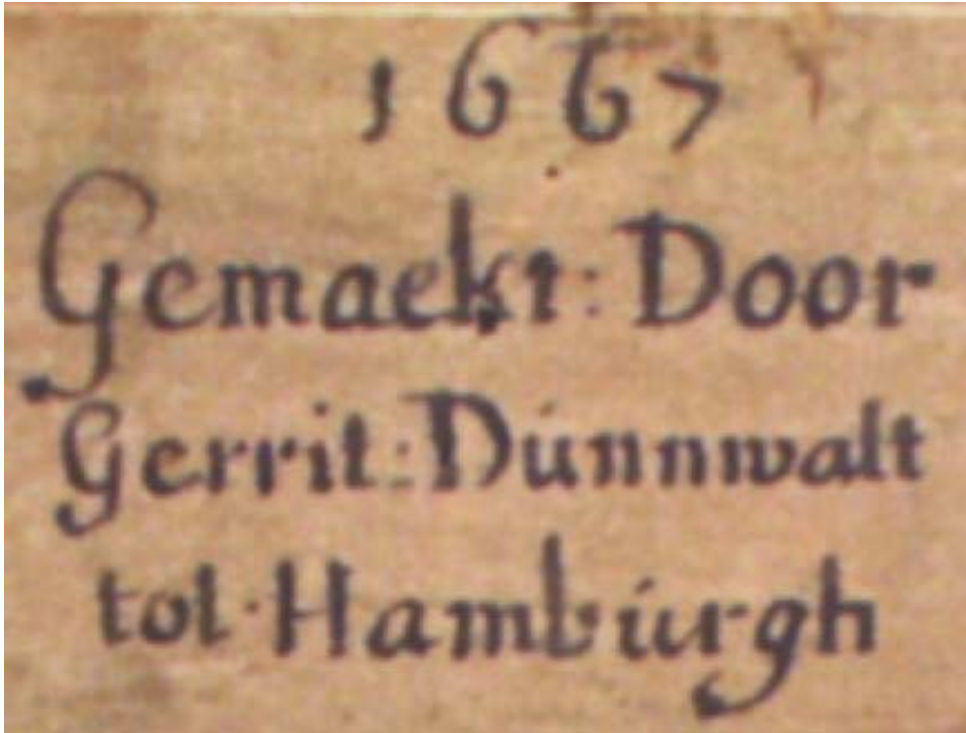 1667
Gemaekt: Door
Gerrit: Dúnnwalt
tot · Hambúrgh